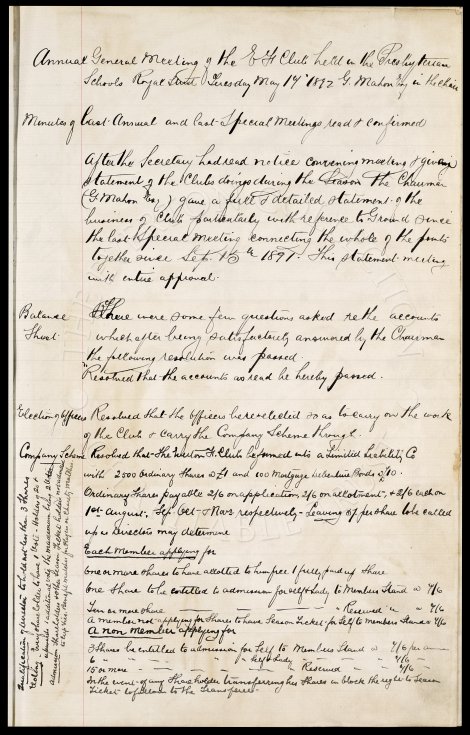 Annual General Meeting of the E F Club held in the Presbyterian
Schools Royal Street Tuesday May 17th 1892 G. Mahon Esq in the chair
Minutes of Last Annual and last Special Meetings read & confirmed
After the Secretary had read notice convening meeting & giving
statement of the Clubs doings during the Season The Chairman
(G Mahon Esq) gave a full & detailed statement of the
business of Club particularly with reference to Ground since
the last Special Meeting connecting the whole of the points
together since Sept 15th 1891. This statement meeting
with entire approval.
Balance There were some few questions asked re the accounts
Sheet which after being satisfactorily answered by the Chairman
the following resolution was passed.
"Resolved that the accounts as read be hereby passed.
Election of Officers Resolved that the officers be reelected so as to carry on the work
of the Club & carry the Company Scheme through.
Company Scheme Resolved that The Everton F. Club be formed into a Limited Liability Co
with 2500 Ordinary Shares @ £1 and 100 Mortgage Debenture Bonds @ £10.
Ordinary Shares payable 2/6 on application, 2/6 on allotment, & 2/6 each on
1st August, Sep Oct & Nov respectively - Leaving 5/- per share to be called
up as Directors may determine
Each Member applying for
One or more Shares to have allotted to him free 1 fully paid up Share
One Share to be entitled to admission for self & Lady to Members Stand @ 7/6
Ten or more Share " " " " Reserved " " 7/6
A member not applying for Shares to have Season Ticket for Self to members Stand at 7/6
A non Member applying for
3 Shares be entitled to admission for Self to Members Stand @ 7/6 per annum
6 " " " " Self & Lady " " 7/6 "
15 or more " " " " Reserved " " 7/6 "
In the event of any Share holder transferring his Shares in block the right to Season
Ticket to pass on to the Transferee
Qualification of Director to hold not less than 3 Shares
Voting - every share holder to have 1 Vote - Holders of